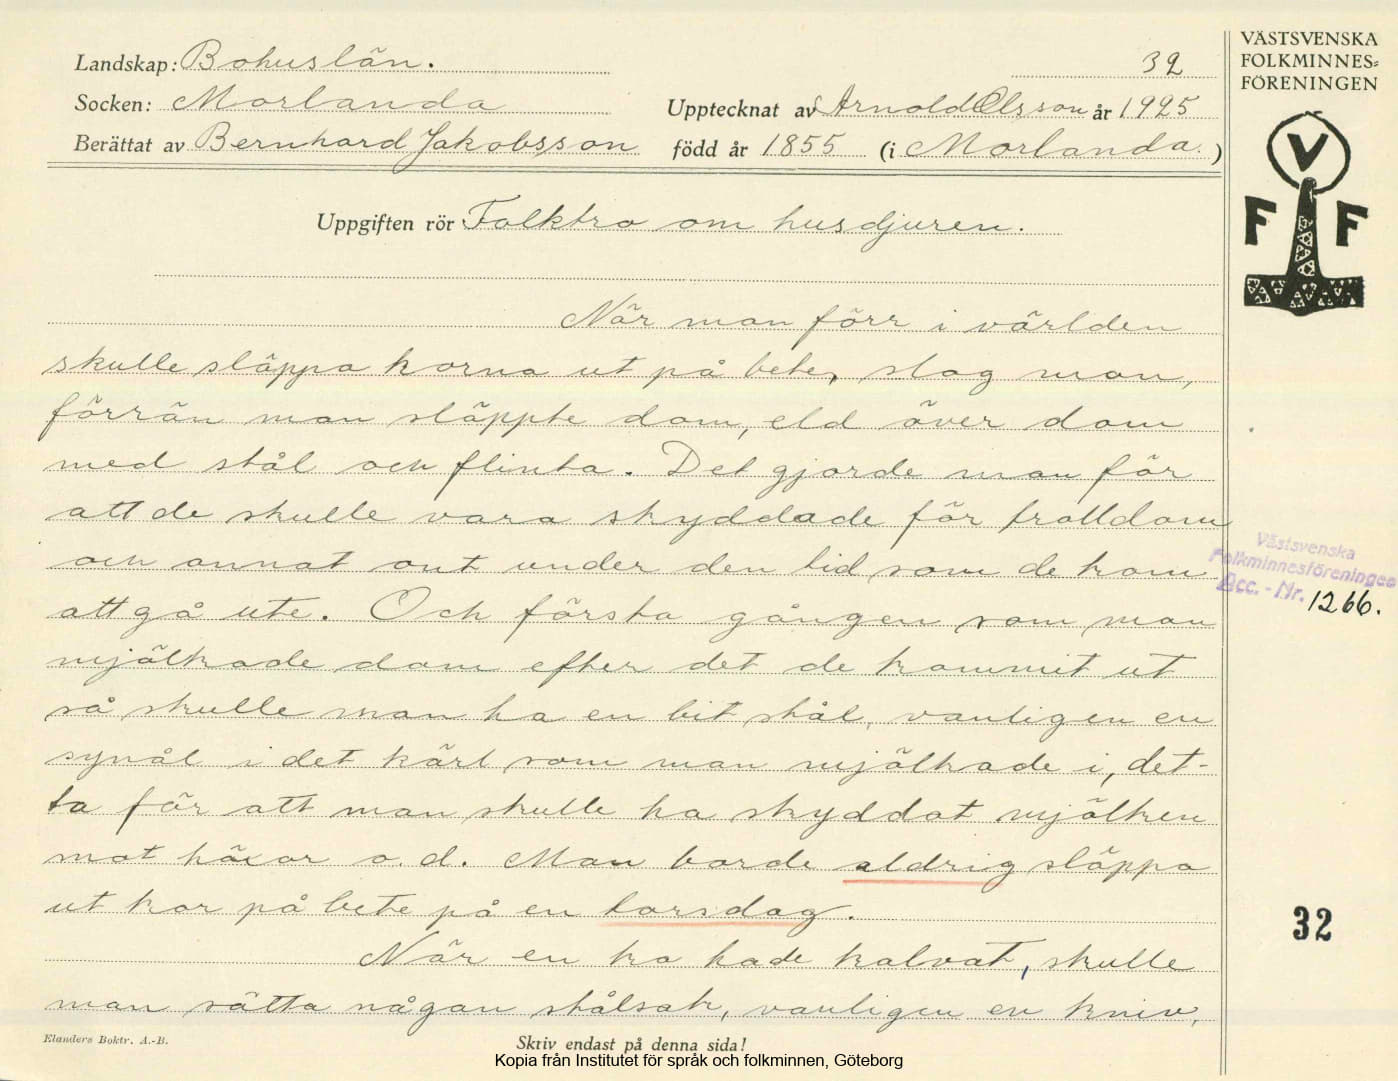 Landskap: Bohuslän.
32
Socken: Morlanda
Upptecknat av Arnold Olsson år 1925
Berättat av Bernhard Jakobsson född år 1855 (i Morlanda.)
Uppgiften rör Folktro om husdjuren.
När man förr i världen
skulle släppa korna ut på bete, slog man,
förrän man släppte dom, eld över dom
med stål och flinta. Det gjorde man för
att de skulle vara skyddade för trolldom
och annat ont under den tid som de kom
att gå ute. Och första gången som man
mjölkade dom efter det de kommit ut
så skulle man ha en bit stål, vanligen en
synål i det kärl som man mjölkade i, det-
ta för att man skulle ha skyddat mjölken
mot häxor o. d. Man borde aldrig släppa
ut kor på bete på en torsdag.
När en ko hade kalvat, skulle
man sätta någon stålsak, vanligen en kniv,
Elanders Boktr. A.-B.
Skriv endast på denna sida!
Kopia från Institutet för språk och folkminnen, Göteborg
VÄSTSVENSKA
FOLKMINNES=
FÖRENINGEN
V
F F
Västsvenska
Folkminnesföreningen
Acc. - Nr. 1266.
32